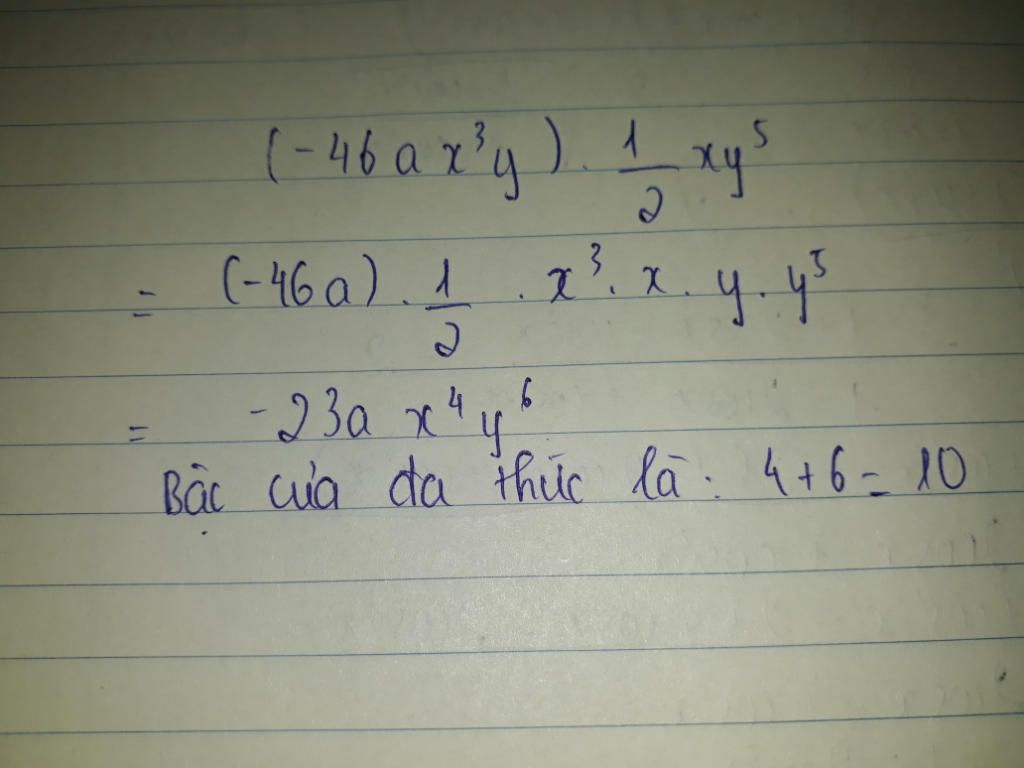 (-46a x³y) . 1/2 xy⁵
= (-46a) . 1/2 . x³ . x . y . y⁵
= -23a x⁴y⁶
Bậc của đa thức là : 4 + 6 = 10